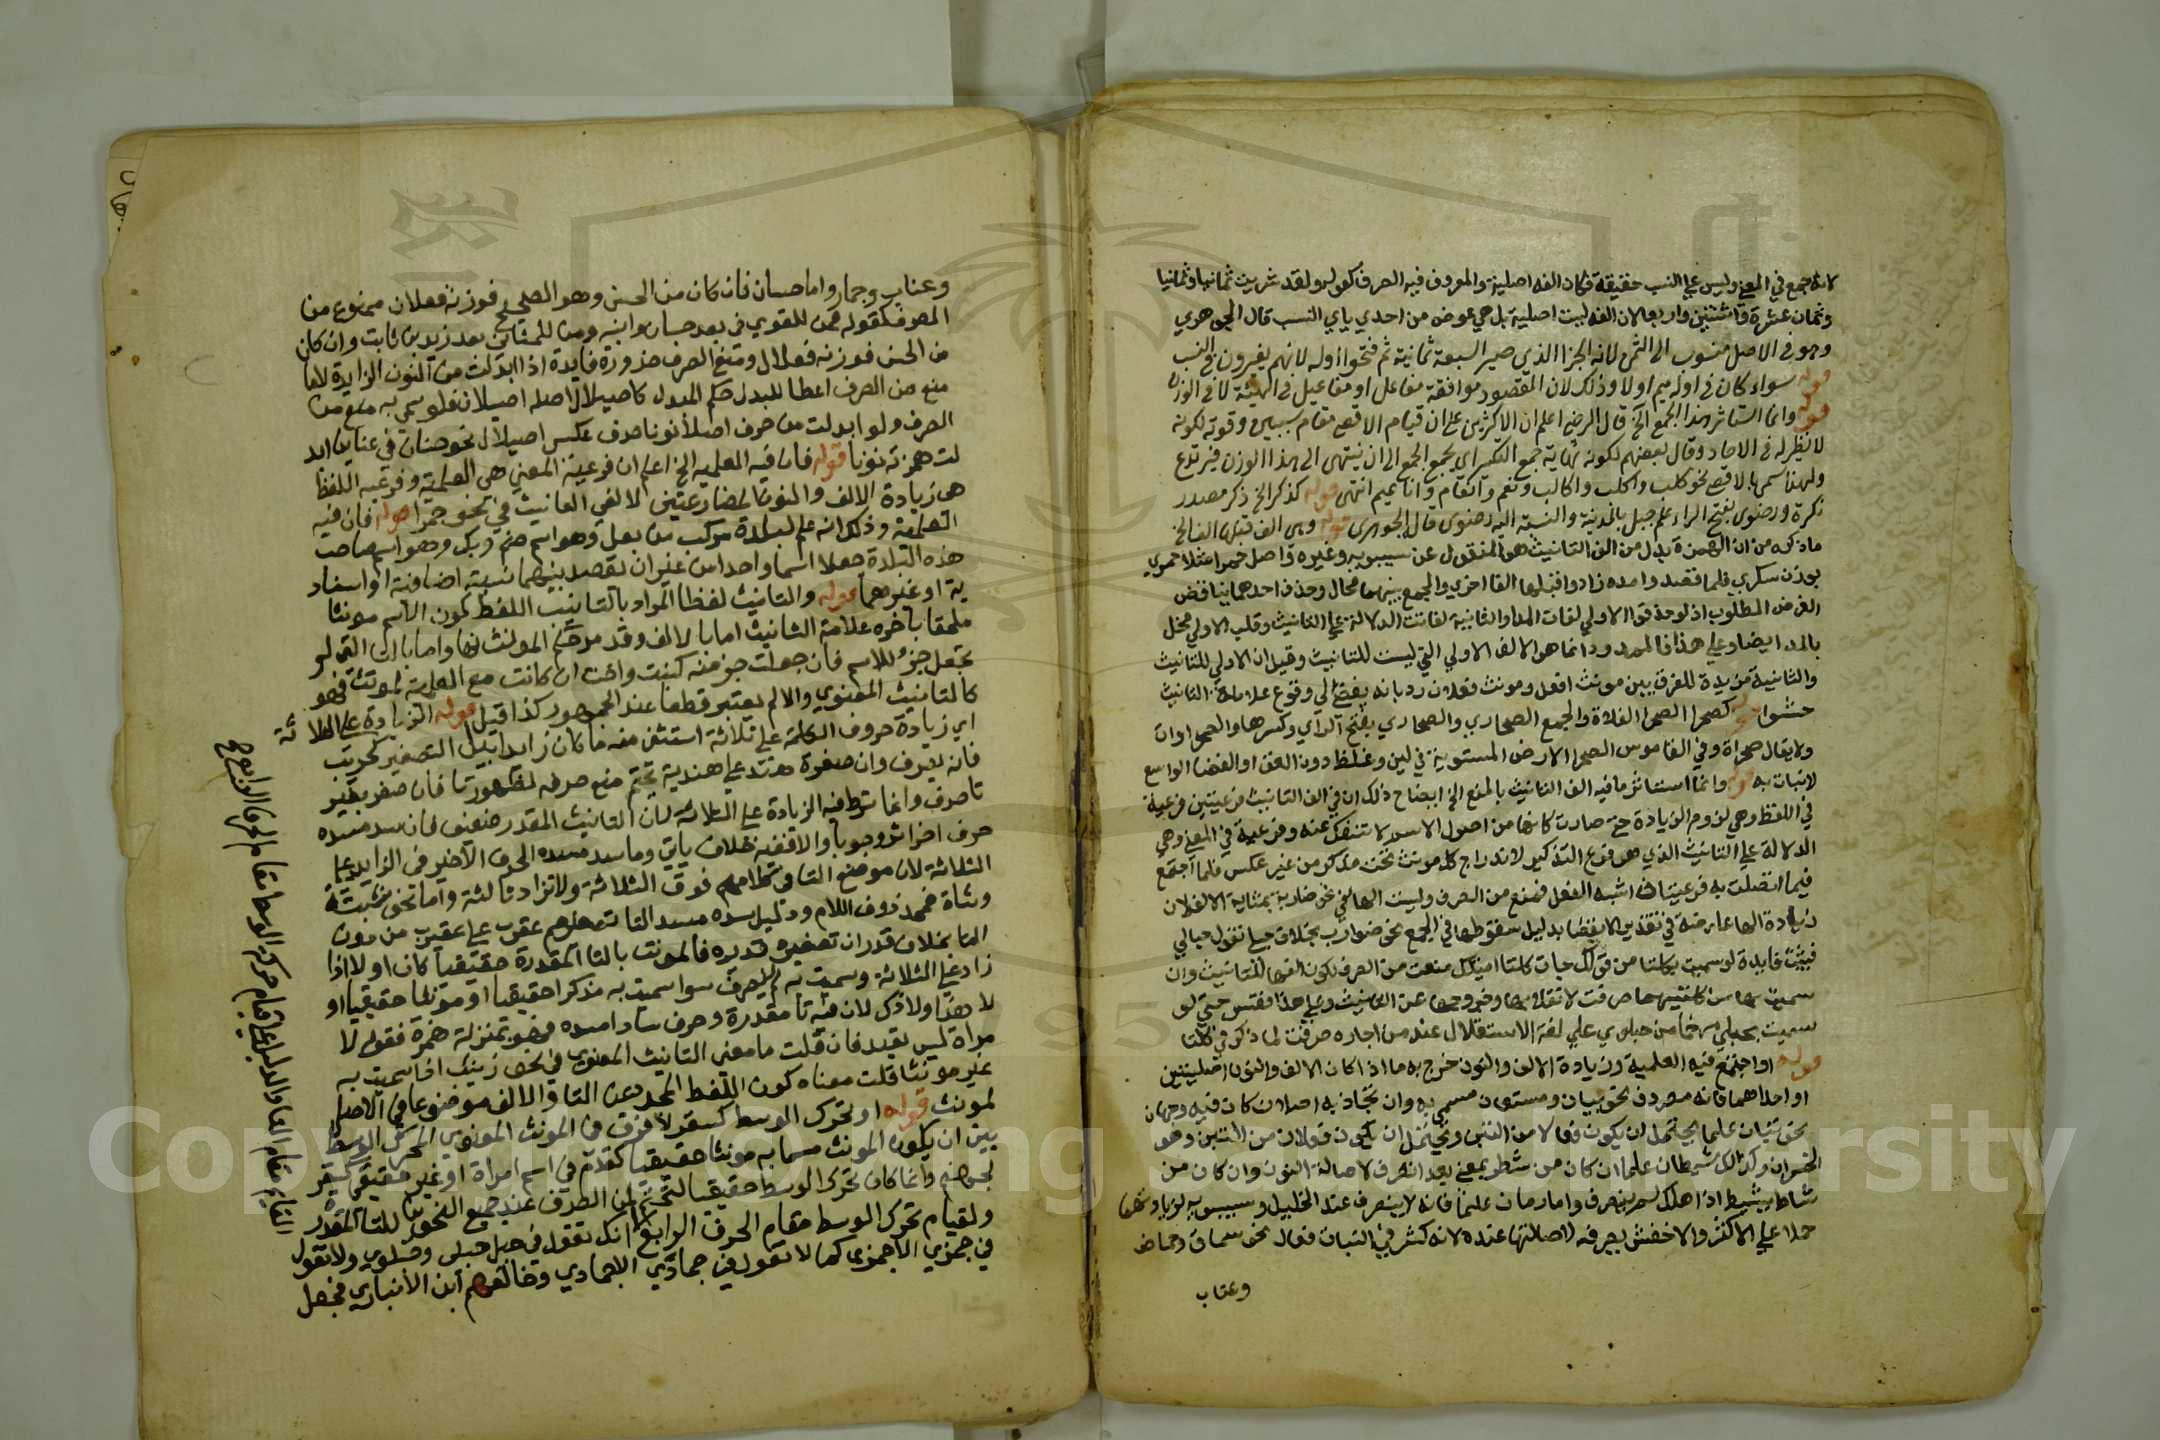 لانه جمع في المعنى وليس على النسب حقيقة فكان الفه اصلية والمعروف فيه الصرف كقوله ولقد شربت ثمانيا وثمانيا
وثمان عشرة واثنتين واربعا لان الفه ليست اصلية بل هي عوض من احدي ياي النسب قال الجوهري
وهو في الاصل منسوب الى الثمن لانه الجزا الذي صير السبعة ثمانية ثم فتحوا اوله لانهم يغيرون في النسب
قوله سواء كان في اوله ميم او لا وذلك لان المقصود موافقة مفاعل او مفاعيل في الهيئة لا في الوزن
قوله وانما استاثر هذا الجمع الخ قال الرضي اعلم ان الاكثرين على ان قيام الاقصى مقام سببين وقوته لكونه
لا نظير له في الاحاد وقال بعضهم لكونه نهاية جمع التكسير اي يجمع الجمع الى ان ينتهي الى هذا الوزن فيرتدع
ولهذا سمي بالاقصى نحو كلب واكلب واكالب ونعم وانعام واناعيم انتهى قوله كذكر الخ ذكر مصدر
نكرة ورضوى بفتح الراء علم جبل بالمدينة والنسبة اليه رضوي قال الجوهري قوله وهي الف قبلها الف الخ
ما ذكره من ان الهمزة بدل من الف التانيث هو المنقول عن سيبويه وغيره واصل حمرا مثلا حمري
بوزن سكري فلما قصد وامده زادوا قبلها الفا اخري والجمع بينهما محال وحذف احدهما يناقض
الغرض المطلوب اذ لو حذفوا الاولي لفات المد او الثانية لفاتت الدلالة على التانيث وقلب الاولي مخل
بالمد ايضا وعلى هذا فالممدود انما هو الالف الاولي التي ليست للتانيث وقيل ان الاولي للتانيث
والثانية مزيدة للفرق بين مونث افعل ومونث فعلان رد بانه يفضي الي وقوع علامة التانيث
حشوا قوله كصحرا الصحرا الفلاة والجمع الصحاري والصحاري بفتح الراي وكسرها والصحراوات
ولا يقال صحراة وفي القاموس الصحرا الارض المستوية في لين وغلظ دون القف او الفضا الواسع
لا نبات به قوله وانما استاثر ما فيه الف التانيث بالمنع الخ ايضاح ذلك ان في الف التانيث فرعيتين فرعية
في اللفظ وهي لزوم الزيادة حتى صارت كانها من اصول الاسم لا تنفك عنه وفرعية في المعنى وهي
الدلالة على التانيث الذي هو فرع التذكير لاندراج كل مونث تحت مذكر من غير عكس فلما اجتمع
فيما اتصلت به فرعيتان اشبه الفعل فمنع من الصرف وليست الها في نحو ضاربة بمثابة الالف لان
زيادة الها عارضة في تقدير الانفضا بدليل سقوطها في الجمع نحو ضوارب بخلاف حبلى تقول حبالي
فبثت فايدة لو سميت بكلتا من قولك جات كلتا امتيكل منعت من الصرف لكون الفها للتانيث وان
سميت بها من كلتيهما صرفت لانقلابها وخروجها عن التانيث وعلى هذا فقس حتى لو
سميت بحبلى مرخما من حبلوي على لغة الاستقلال عند من اجازه صرفت لما ذكر في كلتا
قوله او اجتمع فيه العلمية وزيادة الالف والنون خرج به ما اذا كان الالف والنون اصليتين
او احداهما فانه مصروف نحو بيان ومستعان مسمى به وان تجاذبه اصلان كان فيه وجهان
نحو تبان علما يحتمل ان يكون فعالا من التبن ويحتمل ان يكون فعلان من التبن وهو
الخسران وكذلك شيطان علما ان كان من شطن بمعنى بعد انصرف لاصالة النون وان كان من
شاط يشيط اذا هلك لم ينصرف واما رمان علما فانه لا ينصرف عند الخليل وسيبويه لزيادتهما
حملا علي الاكثر والاخفش يصرفه لاصالتها عنده لانه كثر في النبات فعال نحو سماق وحماض
وعناب
وعناب وجمار واما حسان فان كان من الحس وهو الصحيح فوزنه فعلان ممنوع من
الصرف كقوله فمن للقوافي بعد حسان وابنه ومن للمثاني بعد زيد بن ثابت وان كان
من الحسن فوزنه فعال ومنع الصرف ضرورة فايدة اذا ابدلت من النون الزايدة لاما
منع من الصرف اعطا للبدل حكم المبدل كاصيلال اصله اصيلان فلو سمي به منع من
الصرف ولو ابدلت من حرف اصلي نونا صرف عكس اصيلال نحو حنان في حناء ابد
لت همزته نونا قوله فان فيه العلمية الخ اعلم ان فرعية المعنى هي العلمية وفرعية اللفظ
هي زيادة الالف والنون المضارعتين لالفي التانيث في نحو حمرا قوله فان فيه
العلمية وذلك انه علم لبلدة مركب من بعل وهو اسم صنم وبك وهو اسم صاحب
هذه البلدة جعلا اسما واحدا من غير ان يقصد بينهما نسبة اضافية او اسناد
ية او غيرهما قوله والتانيث لفظا المراد بالتانيث اللفظ كون الاسم مونثا
ملحقا باخره علامة التانيث اما بالالف وقد مر حكم المونث بها واما بالتا التي لم
تجعل جزو للاسم فان جعلت جزء منه كبنت واخت ان كانت مع العلمية لمونث فهو
كالتانيث المعنوي والا لم يعتبر قطعا عند الجمهور كذا قيل قوله الزيادة على الثلاثة
اي زيادة حروف الكلمة على ثلاثة استثني منه ما كان زايدا بيا التصغير كحريب
فانه يصرف وان صغرت هند على هنيدة تحتم منع صرفه لظهور تا فان صغر بغير
تا صرف وانما شرط فيه الزيادة على الثلاثة لان التانيث المقدر ضعيف فان سد مسده
حرف اخر اثر وجوبا والا ففيه خلاف ياتي وما سد مسده الحرف الاخير في الزايد على
الثلاثة لان موضع التا في كلامهم فوق الثلاثة ولا تزاد ثالثة واما نحو ثبة
وشاة فمحذوف اللام ودليل سده مسد التا تصغيرهم عقرب على عقيرب من دون
التا بخلاف قدر ان تصغيره قديره فالمونث بالتا المقدرة حقيقيا كان او لا اذا
زاد على الثلاثة وسميت به لم ينصرف سوا سميت به مذكرا حقيقيا او مونثا حقيقيا او
لا هذا ولا ذاك لان فيه تا مقدرة وحرف ساد مسده فهو بمنزلة حمزة فقوله لا
مراة ليس بقيد فان قلت ما معنى التانيث المعنوي في نحو زينب اذا سميت به
غير مونثا قلت معناه كون اللفظ المجرد عن التا والالف موضوعا في الاصل
لمونث قوله او تحرك الوسط كسقر لا فرق في المونث المعنوي المحرك الوسط
بين ان يكون المونث مسما به مونثا حقيقيا كقدم في اسم امراة او غير حقيقي كسقر
لجهنم وانما كان تحرك الوسط حقيقيا لتحتم منع الصرف عند جميع النحويين للتا المقدرة
ولقيام تحرك الوسط مقام الحرف الرابع انك تقول في حبلى حبلي وحبلوي ولا تقول
في جمزي الا جمزي كما لا تقول في جمادي الا جمادي وخالفهم ابن الانباري فجعل
القايم مقام التا والدليل على قيام حركة الوسط مقام الحرف الرابع